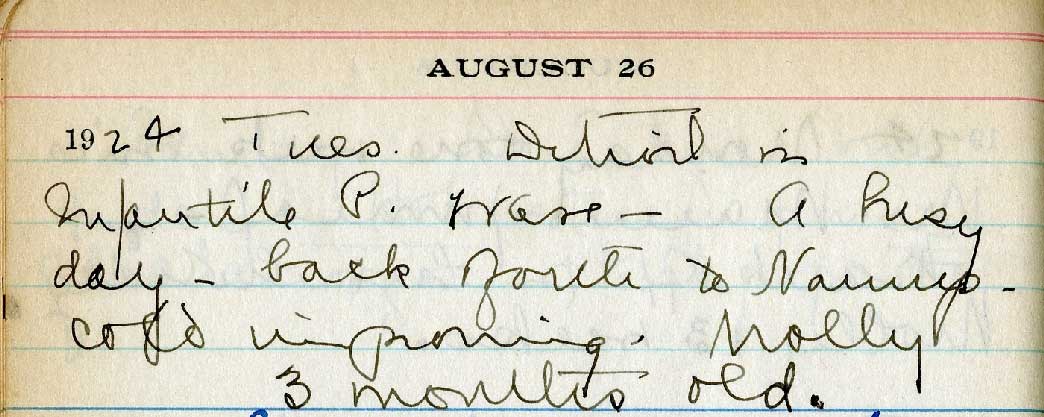 AUGUST 26
1924 Tues. Detroit in
Infantile P. wave - A busy
day - back forth to Nannys -
cold improving. Molly
3 months old.